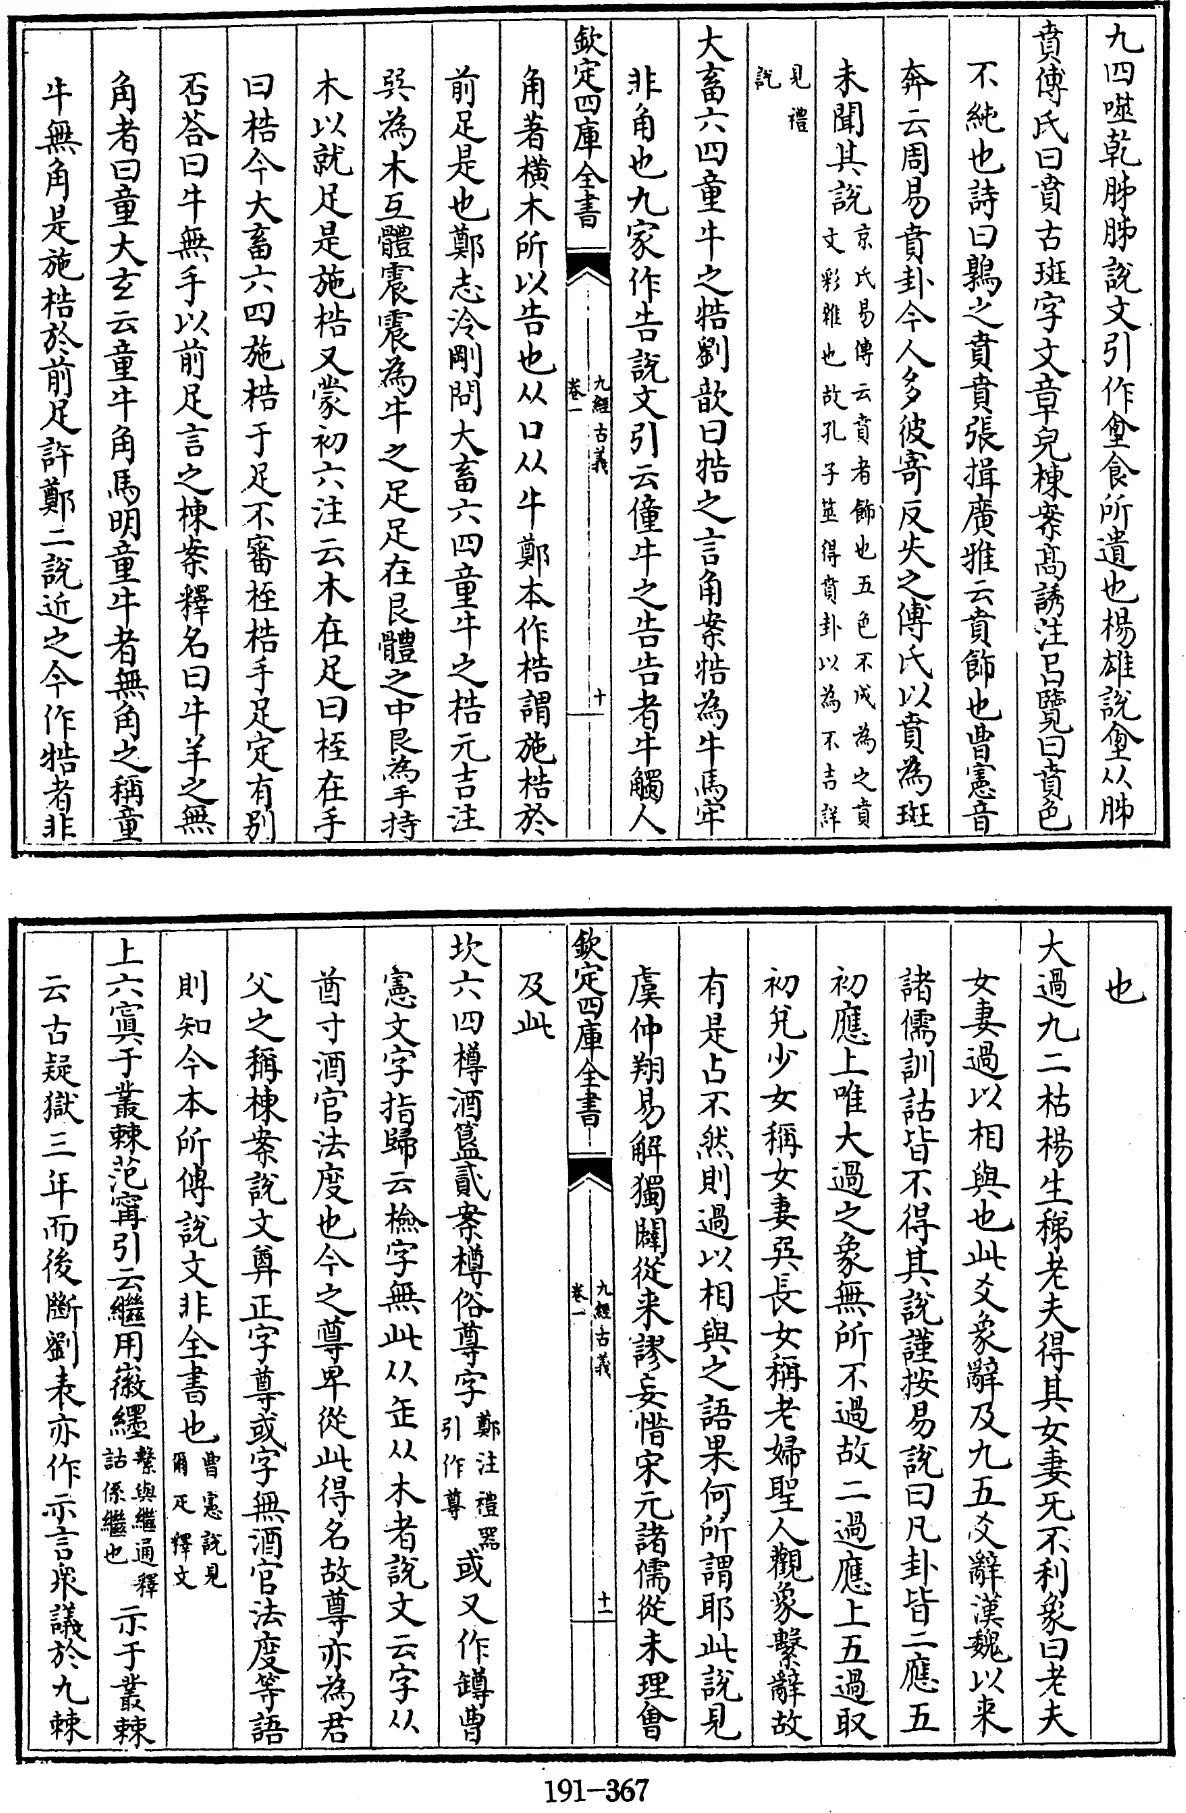 九四噬乾胏胏說文引作𠊧食所遺也楊雄說𠊧从胏
賁傅氏曰賁古斑字文章皃棟案髙誘注呂覽曰賁色
不純也詩曰鶉之賁賁張揖廣雅云賁飾也曹憲音
奔云周易賁卦今人多彼寄反失之傅氏以賁為斑
未聞其說京氏易傳云賁者飾也五色不成為之賁文彩雜也故孔子筮得賁卦以為不吉詳
見禮說
大畜六四童牛之牿劉歆曰牿之言角案牿為牛馬牢
非角也九家作告說文引云僮牛之告告者牛觸人
欽定四庫全書
九經古義
卷一
十
角著橫木所以告也从口从牛鄭本作梏謂施梏於
前足是也鄭志泠剛問大畜六四童牛之梏元吉注
巽為木互體震震為牛之足足在艮體之中艮為手持
木以就足是施梏又蒙初六注云木在足曰桎在手
曰梏今大畜六四施梏于足不審桎梏手足定有別
否答曰牛無手以前足言之棟案釋名曰牛羊之無
角者曰童大玄云童牛角馬明童牛者無角之稱童
牛無角是施梏於前足許鄭二說近之今作牿者非
也
大過九二枯楊生稊老夫得其女妻无不利象曰老夫
女妻過以相與也此爻象辭及九五爻辭漢魏以来
諸儒訓詁皆不得其說謹按易說曰凡卦皆二應五
初應上唯大過之象無所不過故二過應上五過取
初兊少女稱女妻巽長女稱老婦聖人觀象繫辭故
有是占不然則過以相與之語果何所謂耶此說見
虞仲翔易解獨闢從来謬妄惜宋元諸儒從未理會
欽定四庫全書
九經古義
卷一
十一
及此
坎六四樽酒簋貳案樽俗尊字鄭注禮器引作尊或又作罇曹
憲文字指歸云檢字無此从缶从木者說文云字从
酋寸酒官法度也今之尊卑從此得名故尊亦為君
父之稱棟案說文尊正字尊或字無酒官法度等語
則知今本所傳說文非全書也曹憲說見爾疋釋文
上六寘于叢棘范甯引云繼用徽纆繫與繼通釋詁係繼也示于叢棘
云古疑獄三年而後斷劉表亦作示言衆議於九棘
191-367